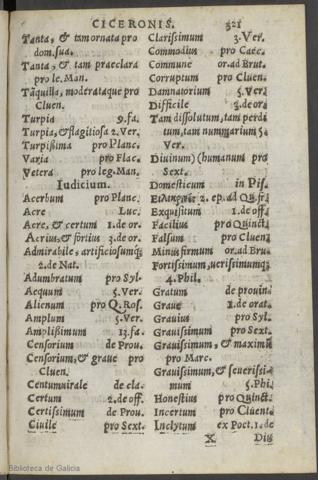 CICERONIS. 321
Tanta, & tam ornata pro
dom. sua.
Tanta, & tam præclara
pro le. Man.
Tãquilla, moderataque pro
Cluen.
Turpia 9. fa.
Turpia, & flagitiosa 2. Ver.
Turpißima pro Planc.
Varia pro Flac.
Vetera pro leg. Man.
Iudicium.
Acerbum pro Planc.
Acre Luc.
Acre, & certum 1. de or.
Acrius, & fortius 3. de or.
Admirabile, artificiosumq;
2. de Nat.
Adumbratum pro Syl.
Aequum 5. Ver.
Alienum pro Q. Ros.
Amplum 5. Ver.
Amplißimum 13. fa.
Censorium de Prou.
Censorium, & graue pro
Cluen.
Centumuirale de cla.
Certum 2. de off.
Certissimum de Prou.
Ciuile pro Sext.
Clarissimum 3. Ver.
Commodius pro Cæc.
Commune or. ad Brut.
Corruptum pro Cluen.
Damnatorium 5. Ver.
Difficile 3. de or.
Tam dissolutum, tam perdi
tum, tam nummarium 5.
Ver.
Diuinum) (humanum pro
Sext.
Domesticum in Pis.
2. ep. ad Qu. fr.
Exquisitum 1. de off.
Facilius pro Quinct.
Falsum pro Cluen.
Minus firmum or. ad Bru.
Fortissimum, uerissimumq;
4. Phil.
Gratum de prouin.
Graue 1. de orat.
Grauius pro Syl.
Grauissimum pro Sext.
Grauissimum, & maximũ
pro Marc.
Grauissimum, & seuerissi-
mum 5. Phi.
Honestius pro Quinct.
Incertum pro Cluent.
Inclytum ex Poet. 1. de
X Diu
Biblioteca de Galicia